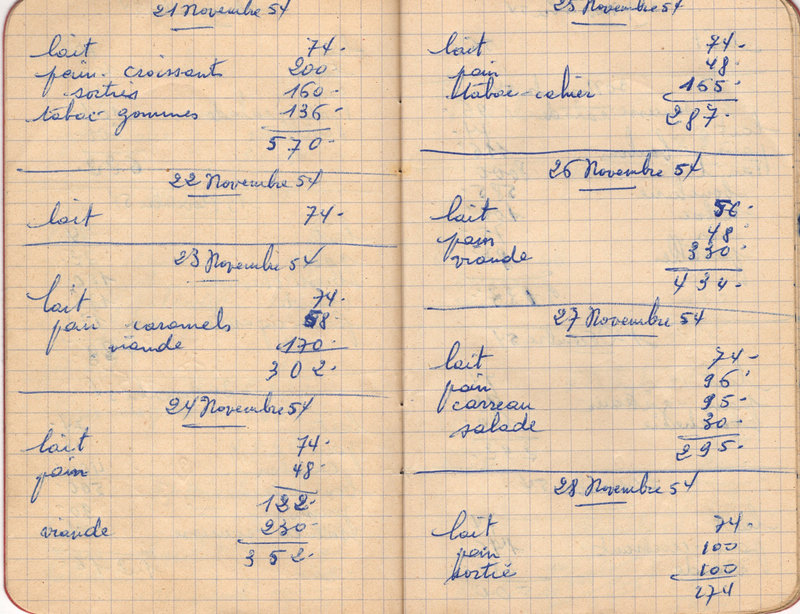 21 Novembre 54
lait 74.
pain. croissants 200
sorties 160.
tabac gommes 136.
570.
22 Novembre 54
lait 74.
23 Novembre 54
lait 74.
pain caramels 58.
viande 170.
302.
24 Novembre 54
lait 74.
pain 48.
122.
viande 230.
352.
25 Novembre 54
lait 74.
pain 48.
tabac-cahier 165.
287.
26 Novembre 54
lait 56.
pain 48.
viande 330.
434.
27 Novembre 54
lait 74.
pain 96.
carreau 95.
salade 30.
295.
28 Novembre 54
lait 74.
pain 100
sortie 100
274